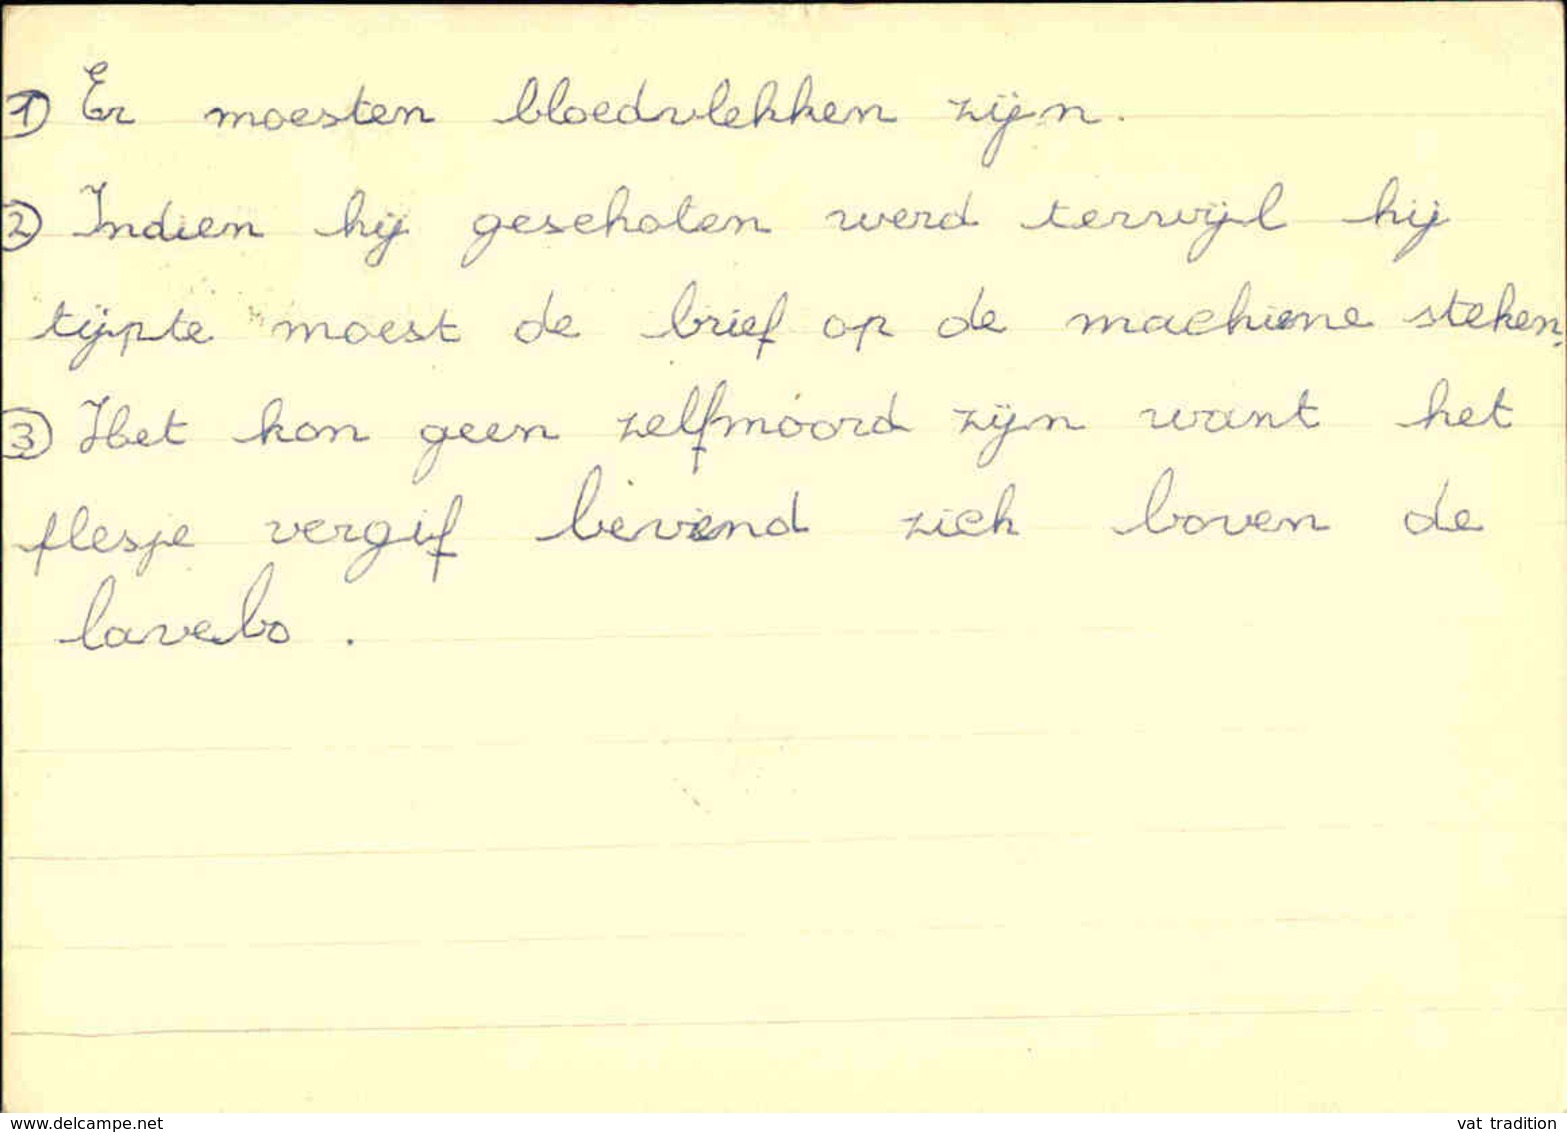 1) Er moesten bloedvlekken zijn.
2) Indien hij geschoten werd terwijl hij
tijpte moest de brief op de machiene steken.
3) Het kon geen zelfmoord zijn want het
flesje vergif bevind zich boven de
lavebo.
www.delcampe.net
vat_tradition